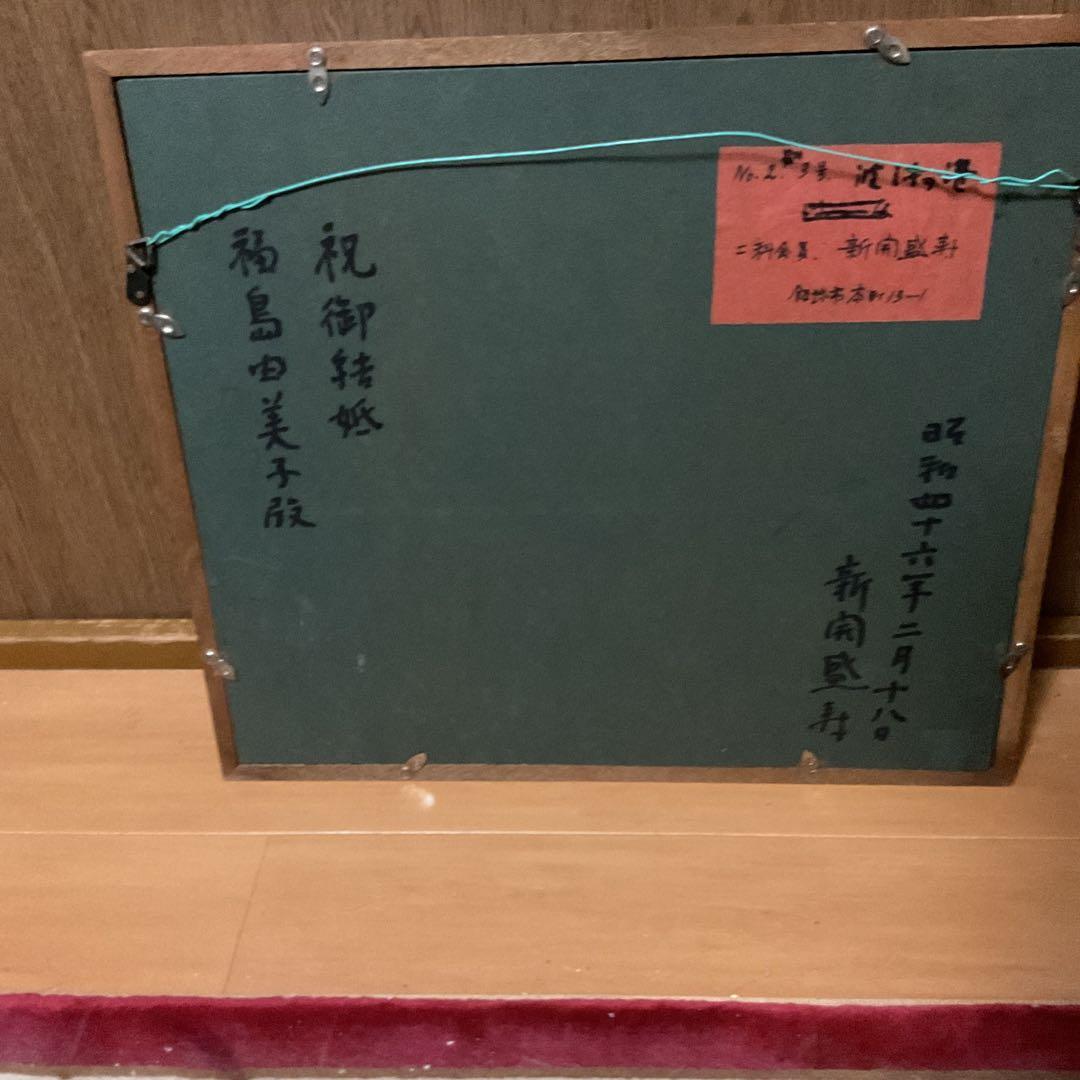 祝御結婚
福島由美子殿
No.2. 3号
二科会員、新開盛寿
本町13-1
昭和四十六年二月十八日
新開盛寿